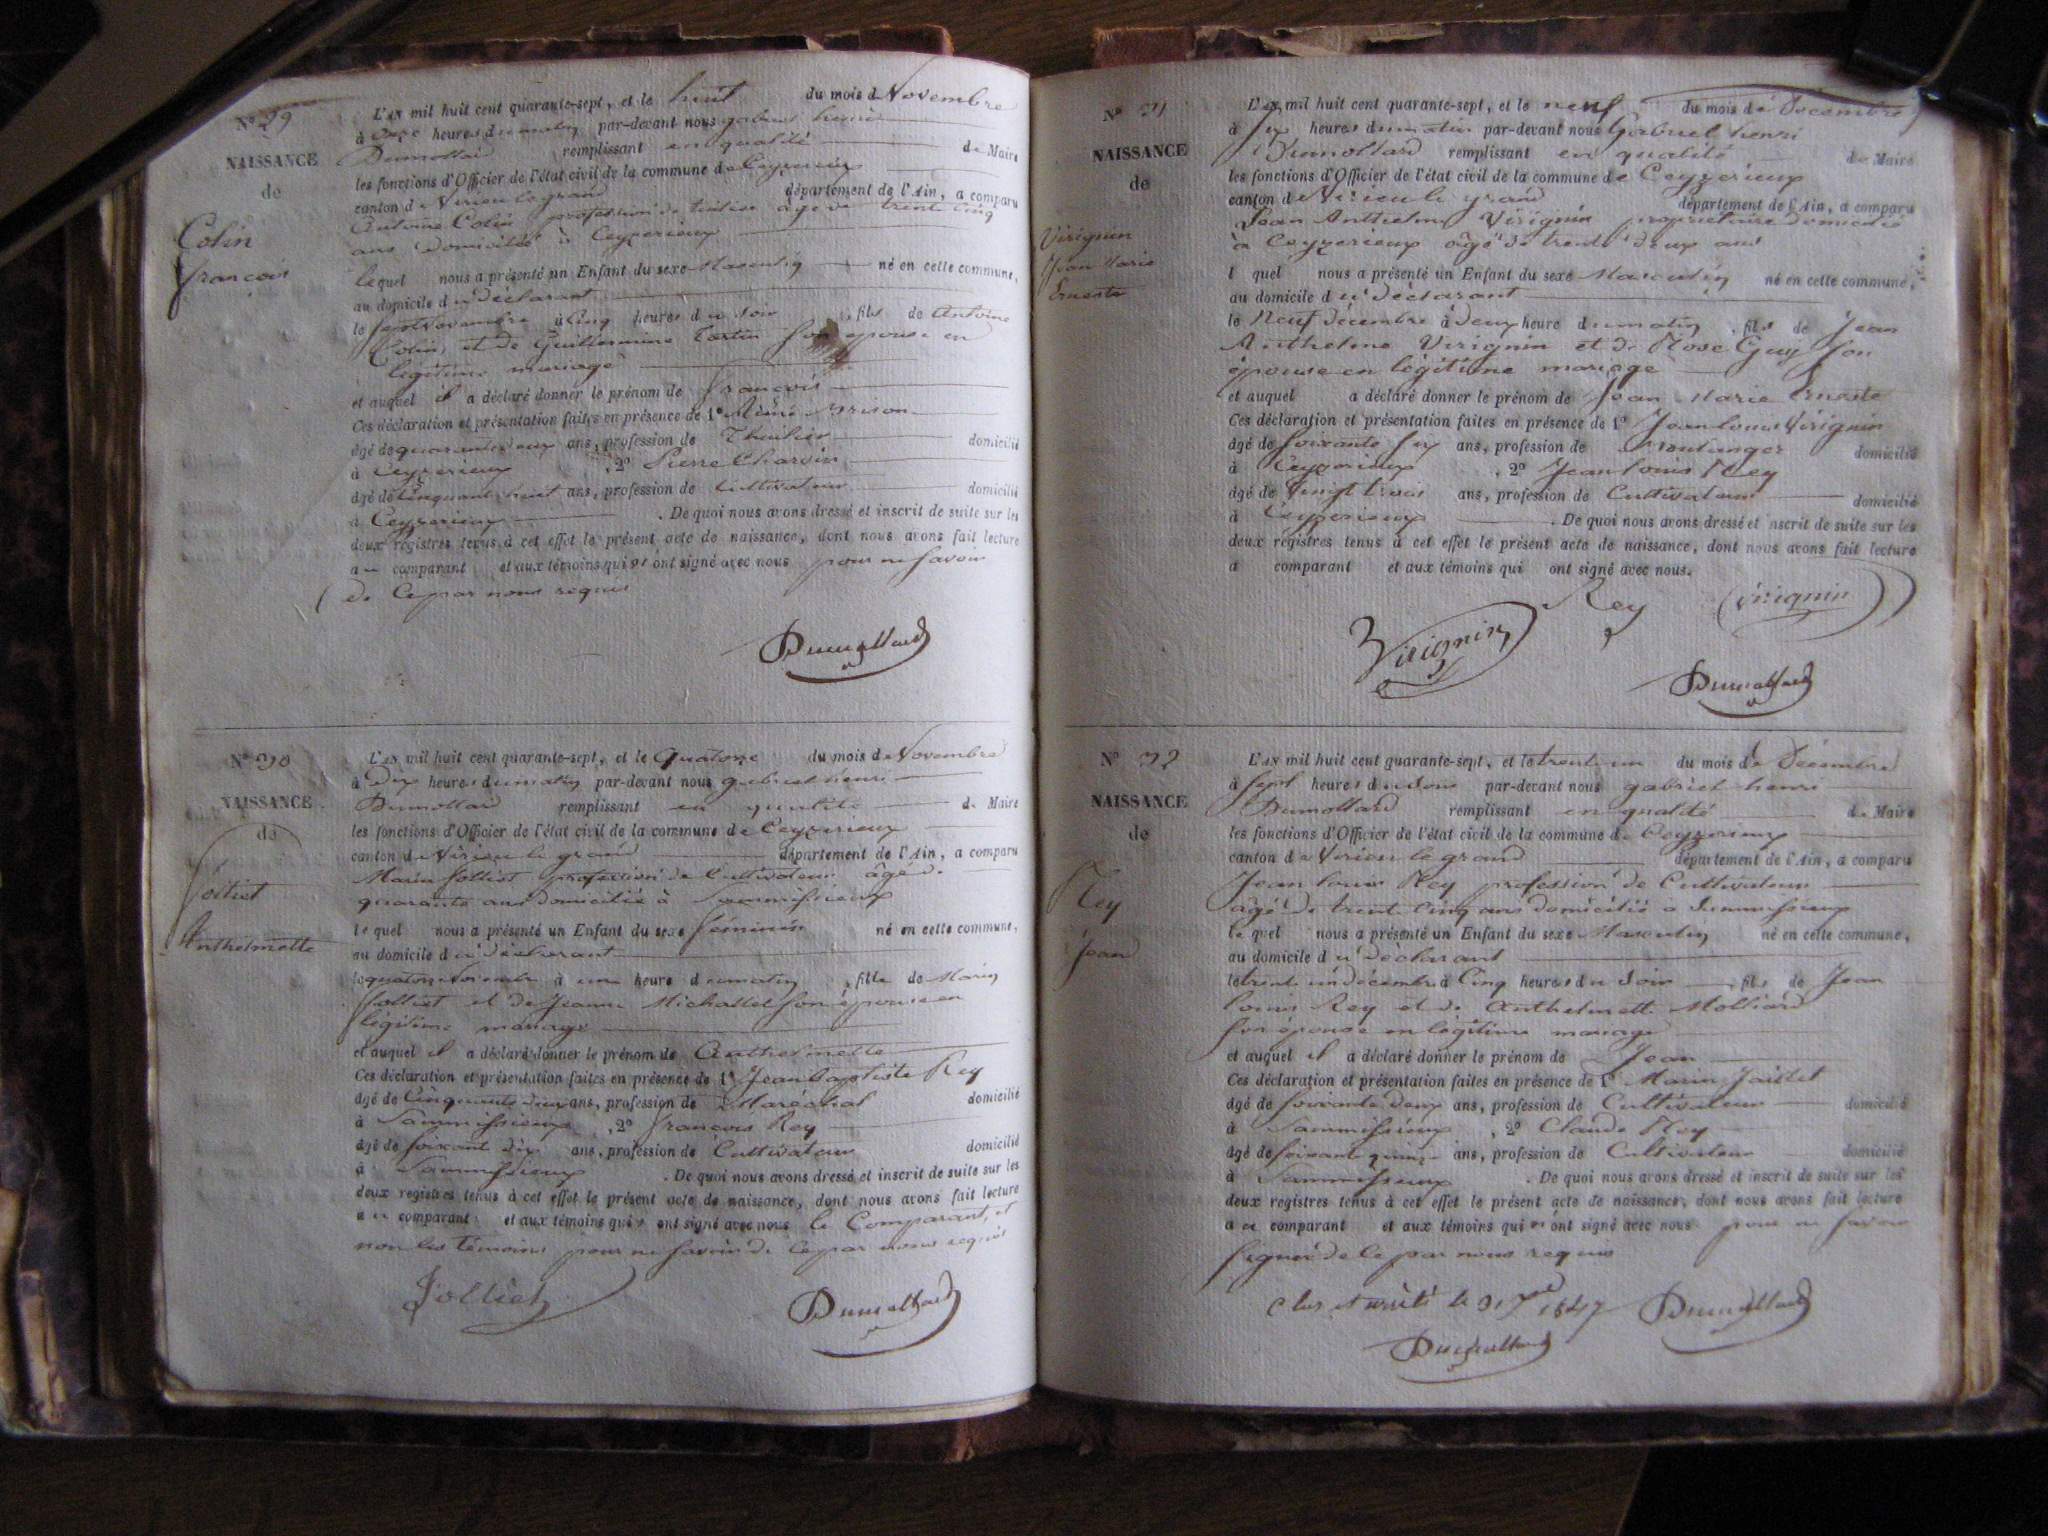 Nº 29
NAISSANCE
de
Colin
françois
L'AN mil huit cent quarante-sept, et le huit du mois de Novembre
à onze heures du matin par-devant nous gabriel henri
Dumollard remplissant en qualité de Maire
les fonctions d'Officier de l'état civil de la commune de Ceyzerieux
canton de Virieu le grand département de l'Ain, a comparu
Antoine Colin profession de âgé de trente cinq
ans domicilié à Ceyzerieux
lequel nous a présenté un Enfant du sexe Masculin né en cette commune,
au domicile du déclarant
le sept Novembre à cinq heures du soir , fils de Antoine
Colin, et de Guillermine son épouse en
légitime mariage
et auquel il a déclaré donner le prénom de françois
Ces déclaration et présentation faites en présence de 1º
âgé de quarante deux ans, profession de domicilié
à Ceyzerieux , 2º Pierre Charvin
âgé de Cinquante huit ans, profession de Cultivateur domicilié
à Ceyzerieux . De quoi nous avons dressé et inscrit de suite sur les
deux registres tenus à cet effet le présent acte de naissance, dont nous avons fait lecture
au comparant et aux témoins qui n'ont signé avec nous pour ne savoir
de Ce par nous requis
Dumollard
Nº 30
NAISSANCE
de
Jolliet
Anthelmette
L'AN mil huit cent quarante-sept, et le quatorze du mois de Novembre
à Dix heures du matin par-devant nous gabriel henri
Dumollard remplissant en qualité de Maire
les fonctions d'Officier de l'état civil de la commune de Ceyzerieux
canton de Virieu le grand département de l'Ain, a comparu
Marin Jolliet profession de Cultivateur âgé de
quarante ans domicilié à Sammissieux
lequel nous a présenté un Enfant du sexe féminin né en cette commune,
au domicile du déclarant
le quatorze Novembre à une heure du matin , fille de Marin
Jolliet et de Jeanne Michallet son épouse en
légitime mariage
et auquel il a déclaré donner le prénom de Anthelmette
Ces déclaration et présentation faites en présence de 1º Jean baptiste Rey
âgé de Cinquante deux ans, profession de Maréchal domicilié
à Sammissieux , 2º françois Rey
âgé de soixante dix ans, profession de Cultivateur domicilié
à Sammissieux . De quoi nous avons dressé et inscrit de suite sur les
deux registres tenus à cet effet le présent acte de naissance, dont nous avons fait lecture
au comparant et aux témoins qui ont signé avec nous le Comparant, et
non les témoins pour ne savoir de Ce par nous requis
Jolliet
Dumollard
Nº 31
NAISSANCE
de
Virignin
Jean Marie
Erneste
L'AN mil huit cent quarante-sept, et le neuf du mois de Décembre
à six heures du matin par-devant nous Gabriel henri
Dumollard remplissant en qualité de Maire
les fonctions d'Officier de l'état civil de la commune de Ceyzerieux
canton de Virieu le grand département de l'Ain, a comparu
Jean Anthelme Virignin propriétaire domicilié
à Ceyzerieux âgé de trente deux ans
l quel nous a présenté un Enfant du sexe Masculin né en cette commune,
au domicile du déclarant
le Neuf décembre à deux heure du matin , fils de Jean
Anthelme Virignin et de Rose Guy son
épouse en légitime mariage
et auquel a déclaré donner le prénom de Jean Marie Erneste
Ces déclaration et présentation faites en présence de 1º Jean louis Virignin
âgé de soixante six ans, profession de Boulanger domicilié
à Ceyzerieux , 2º Jean louis Rey
âgé de Vingt trois ans, profession de Cultivateur domicilié
à Ceyzerieux . De quoi nous avons dressé et inscrit de suite sur les
deux registres tenus à cet effet le présent acte de naissance, dont nous avons fait lecture
a comparant et aux témoins qui ont signé avec nous.
Rey Virignin
Virignin
Dumollard
Nº 32
NAISSANCE
de
Rey
Jean
L'AN mil huit cent quarante-sept, et le trente un du mois de Décembre
à sept heures du soir par-devant nous gabriel henri
Dumollard remplissant en qualité de Maire
les fonctions d'Officier de l'état civil de la commune de Ceyzerieux
canton de Virieu le grand département de l'Ain, a comparu
Jean louis Rey profession de Cultivateur
âgé de trente cinq ans domicilié à Sammissieux
le quel nous a présenté un Enfant du sexe Masculin né en cette commune,
au domicile du déclarant
le trente un décembre à Cinq heures du soir , fils de Jean
louis Rey et de Anthelmette Molliard
son épouse en légitime mariage
et auquel il a déclaré donner le prénom de Jean
Ces déclaration et présentation faites en présence de 1º Marin Jaillet
âgé de soixante deux ans, profession de Cultivateur domicilié
à Sammissieux , 2º Claude Rey
âgé de soixante quinze ans, profession de Cultivateur domicilié
à Sammissieux . De quoi nous avons dressé et inscrit de suite sur les
deux registres tenus à cet effet le présent acte de naissance, dont nous avons fait lecture
au comparant et aux témoins qui n'ont signé avec nous pour ne savoir
signer de Ce par nous requis
Clos et arrêté le 31 Xbre 1847 Dumollard
Dumollard